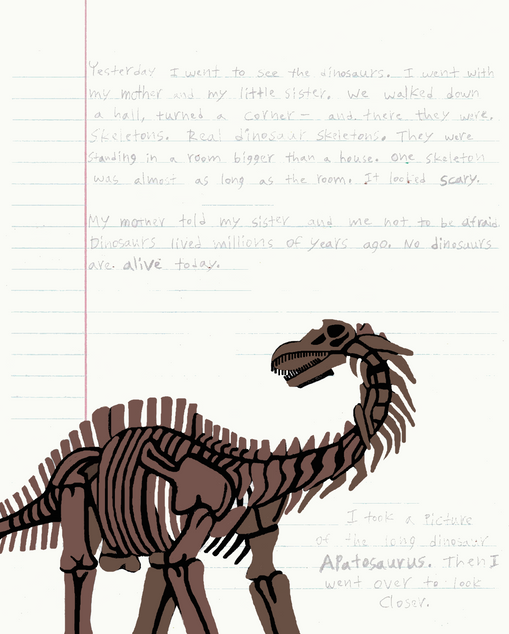 Yesterday I went to see the dinosaurs. I went with
my mother and my little sister. We walked down
a hall, turned a corner – and there they were.
Skeletons. Real dinosaur skeletons. They were
standing in a room bigger than a house. One skeleton
was almost as long as the room. It looked scary.
My mother told my sister and me not to be afraid
Dinosaurs lived millions of years ago. No dinosaurs
are alive today.
I took a Picture
of the long dinosaur
APatosaurus. Then I
went over to look
Closer.